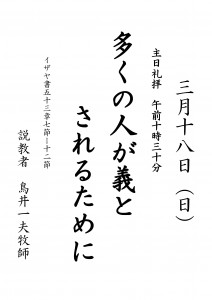 三月十八日（日）
主日礼拝　午前十時三十分
多くの人が義と
されるために
イザヤ書五十三章七節－十二節
説教者　鳥井一夫牧師